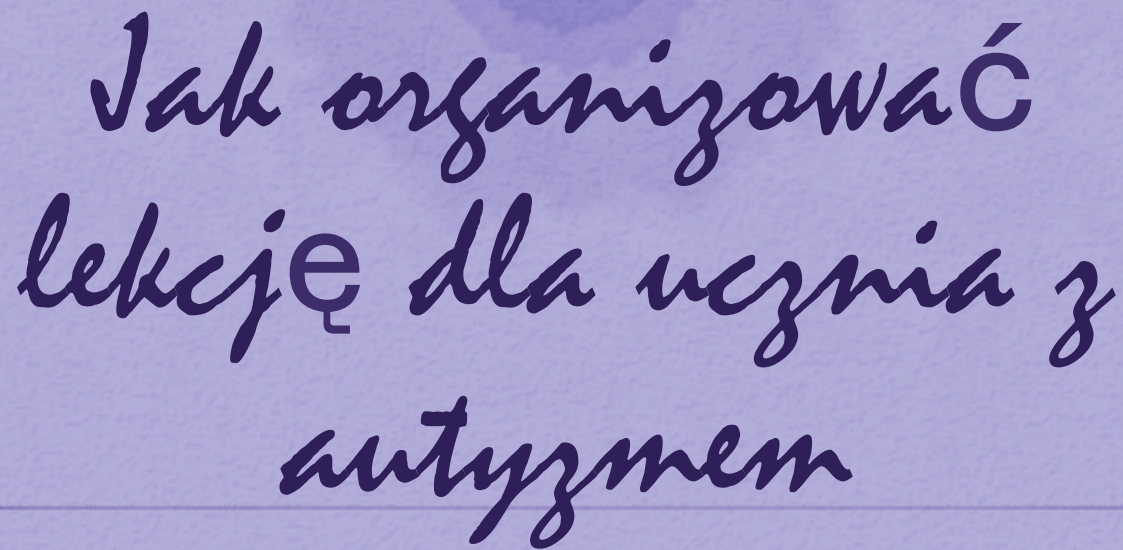 Jak organizować
lekcję dla ucznia z
autyzmem